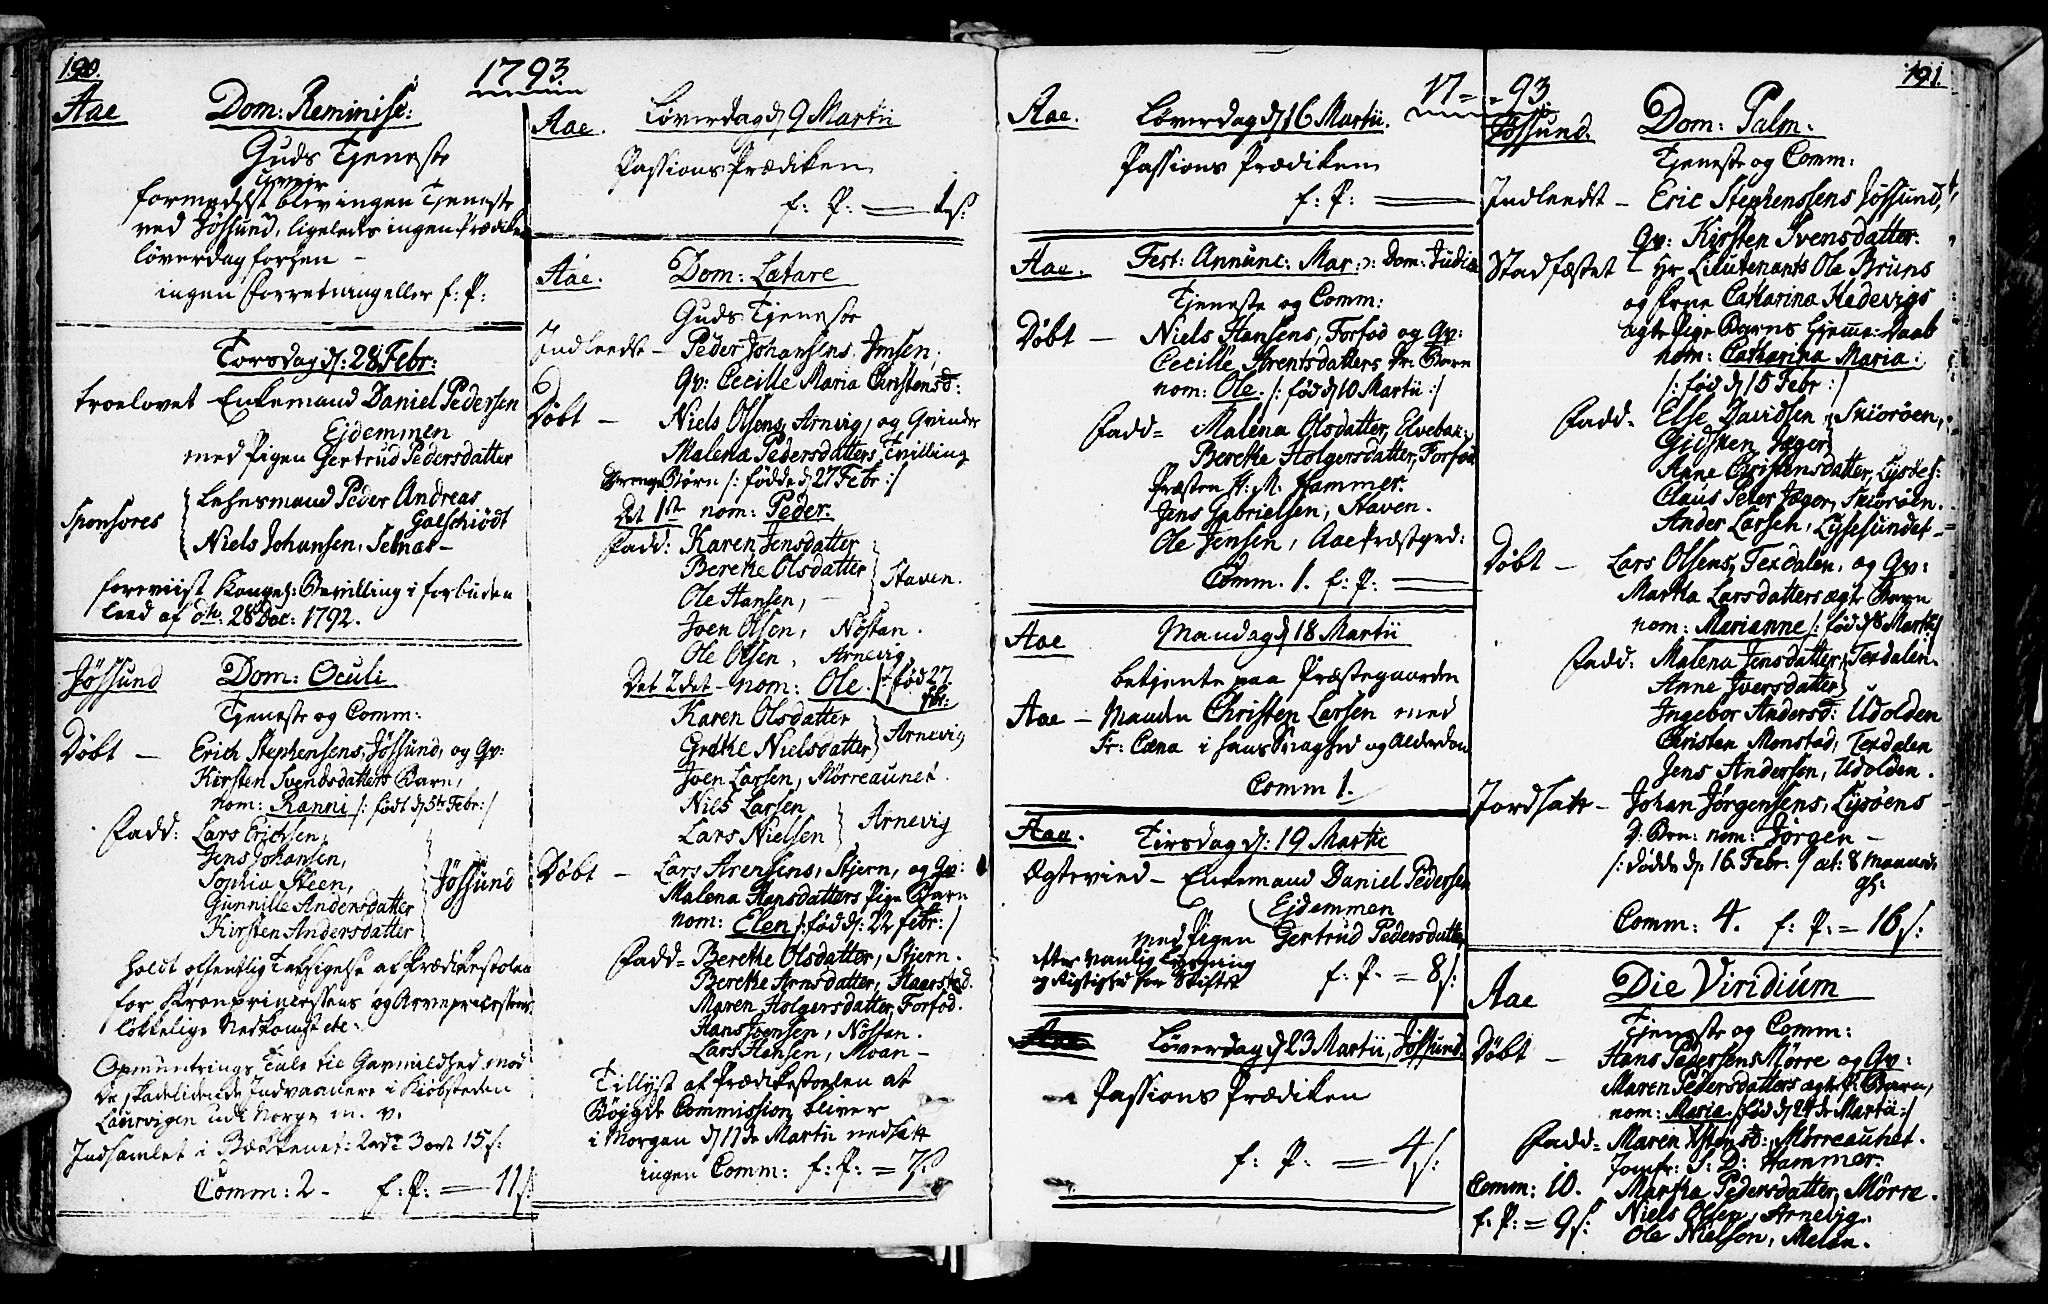 190.
1793
Aae
Dom: Reminisc:
Guds Tjeneste
Uveir
formedelst blev ingen Tjeneste
ved Jøssund, ligeledes ingen Prædiken
løverdag forhen -
ingen Forretning eller f: P:
Torsdag d: 28 Febr:
troelovet Enkemand Daniel Pedersen
Ejdemmen
med Pigen Gertrud Pedersdatter
Sponsores
Lehnsmand Peder Andreas
Golschiödt
Niels Johansen, Selnæs -
foreviist Kongel: Bevilling i forbuden
leed af dto: 28 Dec: 1792.
Jøssund
Dom: Oculi
Tjeneste og Comm:
Døbt - Erich Stephensens, Jössund, og Qv:
Kirsten Svendsdatters Barn,
nom: Ranni /: født d 5te Febr: /
Fadd: Lars Erichsen,
Jens Johansen,
Sophia Steen,
Gunnille Andersdatter
Kirsten Andersdatter
Jøssund
holdt offentlig Taksigelse af Prædikestolen
for Kronprincessens og Arveprincessens
lökkelige Nedkomst etc:
Opmuntrings Tale til Gavmildhed mod
De skadelidende Indvaanere i Kiöbsteden
Laurvigen udi Norge m. v.
Indsamlet i Bækkenet: 2 rdr 3 ort 15 s:
Comm: 2 - f: P: = 11 s:
Aae.
Løverdag d 9 Martii
Passions Prædiken
f: P: = 1 s:
Aae.
Dom: Lætare
Guds Tjeneste
Indleedt - Peder Johansens Imsen,
Qv: Cecille Maria Christensd:
Døbt - Niels Olsens, Arnvig, og Qvinde
Malena Pedersdatters Tvilling
Drenge Börn /: födde d 27 Febr: /
Det 1ste nom: Peder.
Fadd: Karen Jensdatter
Berethe Olsdatter
Ole Hansen,
Staven.
Joen Olsen, Nöstan.
Ole Olsen, Arnevig
Det 2det - nom: Ole. /: fød 27.
Fbr:
Karen Olsdatter
Grethe Nielsdatter
Arnevig
Joen Larsen, Mörreaunet.
Niels Larsen
Lars Nielsen
Arnevig
Døbt - Lars Arensens, Stjern, og Qv:
Malena Hansdatters Pige Barn
nom: Elen /: fød d: 22 febr: /
Fadd = Berethe Olsdatter, Stjern.
Berethe Arnsdatter, Haarstad.
Maren Holgersdatter, Forfod.
Hans Joensen, Nöstan.
Lars Hansen, Moan -
Tillyst af Prædikestoelen at
Bøygde Commission bliver
i Morgen d 11de Martii nedsatt
ingen Comm: f: P: = 7 s:
17 = 93
191.
Aae.
Løverdag d 16 Martii.
Passions Prædiken
f: P: =
Aae.
Fest: Annunc: Mar: ɔ: Dom: Judica
Tjeneste og Comm:
Døbt - Niels Hansens, Forfod og Qv:
Cecille Arentsdatters Dr: Barn
nom: Ole. /: fød d 10 Martii :/
Fadd = Malena Olsdatter, Elvebak:
Berethe Holgersdatter, Forfod
Præsten H: M: Hammer.
Jens Gabrielsen, Staven.
Ole Jensen, Aae Præstgrd:
Comm. 1. f: P: =
Aae
Mandag d 18 Martii
betjente paa Præstegaarden
Aae - Manden Christen Larsen med
Sr: Cæna i hans Svaghed og Alderdom
Comm 1.
Aae.
Tirsdag d: 19 Martii
Ægtevied - Enkemand Daniel Pedersen
Ejdemmen
med Pigen Gertrud Pedersdatter
efter vanlig Lysning
og Rigtighed for Skiftet
f: P: = 8 s:
Løverdag d 23 Martii, Jøssund.
Passions Prædiken
f: P: = 4 s:
Jøssund.
Dom: Palm:
Tjeneste og Comm:
Indleedt - Eric Stephenssens Jøssund,
Qv: Kirsten Svensdatter.
Stadfæstet - Hr Lieutenants Ole Bruns
og Frue Catharina Hedevigs
ægte Pige Barns hjemme-Daab
nom: Catharina Maria:
/: fød d 15 Febr :/
Fadd = Else Davidsen, Skiorøen,
Gidsken Jæger
Anne Christensdatter, Lysøes:
Claus Peter Jæger, Skiorøen.
Ander Larsen, Lyssesundet -
Døbt - Lars Olsens, Texdalen, og Qv:
Martha Larsdatters ægte Barn
nom: Marianne /: fød d 8 Martii /
Fadd: Malena Jensdatter, Texdalen.
Anne Iversdatter
Ingebor Andersd: Udolden
Christen Monstad, Texdalen
Jens Andersen, Udolden.
Jordsatt - Johan Jørgensens, Lysöens
D: Brn: nom: Jörgen -
/: dødde d. 16 Febr. / æt: 8 Maaneder
Comm: 4. f: P: = 16 s:
Aae
Die Viridium
Tjeneste og Comm:
Døbt - Hans Pedersens Mörre og Qv:
Maren Pedersdatters ægte P: Barn,
nom: Maria /: fød d 24de Martii :/
Fadd = Maren Xstensd:, Mørreaunet.
Jomfr: S: D: Hammer.
Comm: 10. Martha Pedersdatter, Mörre.
f: P: = 9 s: Niels Olsen, Arnevig.
Ole Nielsen, Melan.